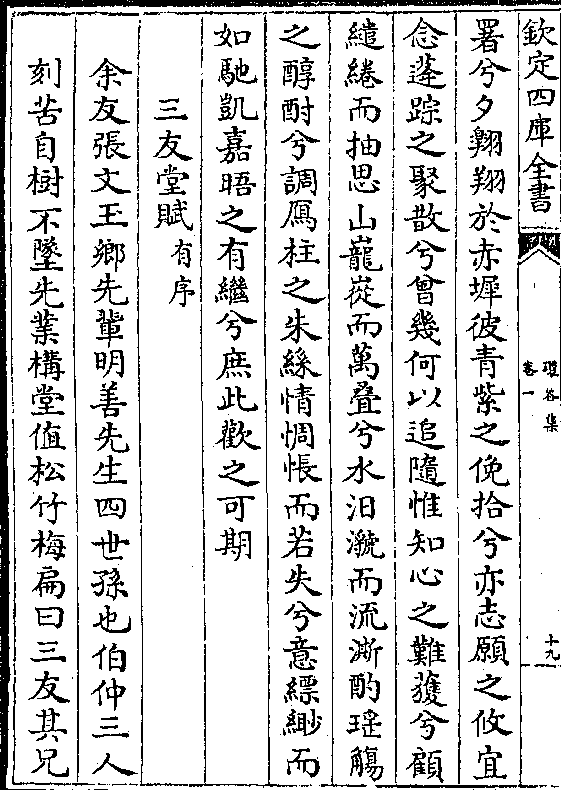 欽定四庫全書
環谷集
卷一
十九
署兮夕翺翔於赤墀彼青紫之俛拾兮亦志願之攸宜
念蓬踪之聚散兮曾幾何以追隨惟知心之難獲兮顧
繾綣而抽思山巃嵸而萬叠兮水汨㶁而流澌酌瑶觴
之醇酎兮調鴈柱之朱絲情惆悵而若失兮意縹緲而
如馳凱嘉晤之有繼兮庶此歡之可期
三友堂賦有序
余友張文玉鄉先輩明善先生四世孫也伯仲三人
刻苦自樹不墜先業構堂值松竹梅扁曰三友其兄